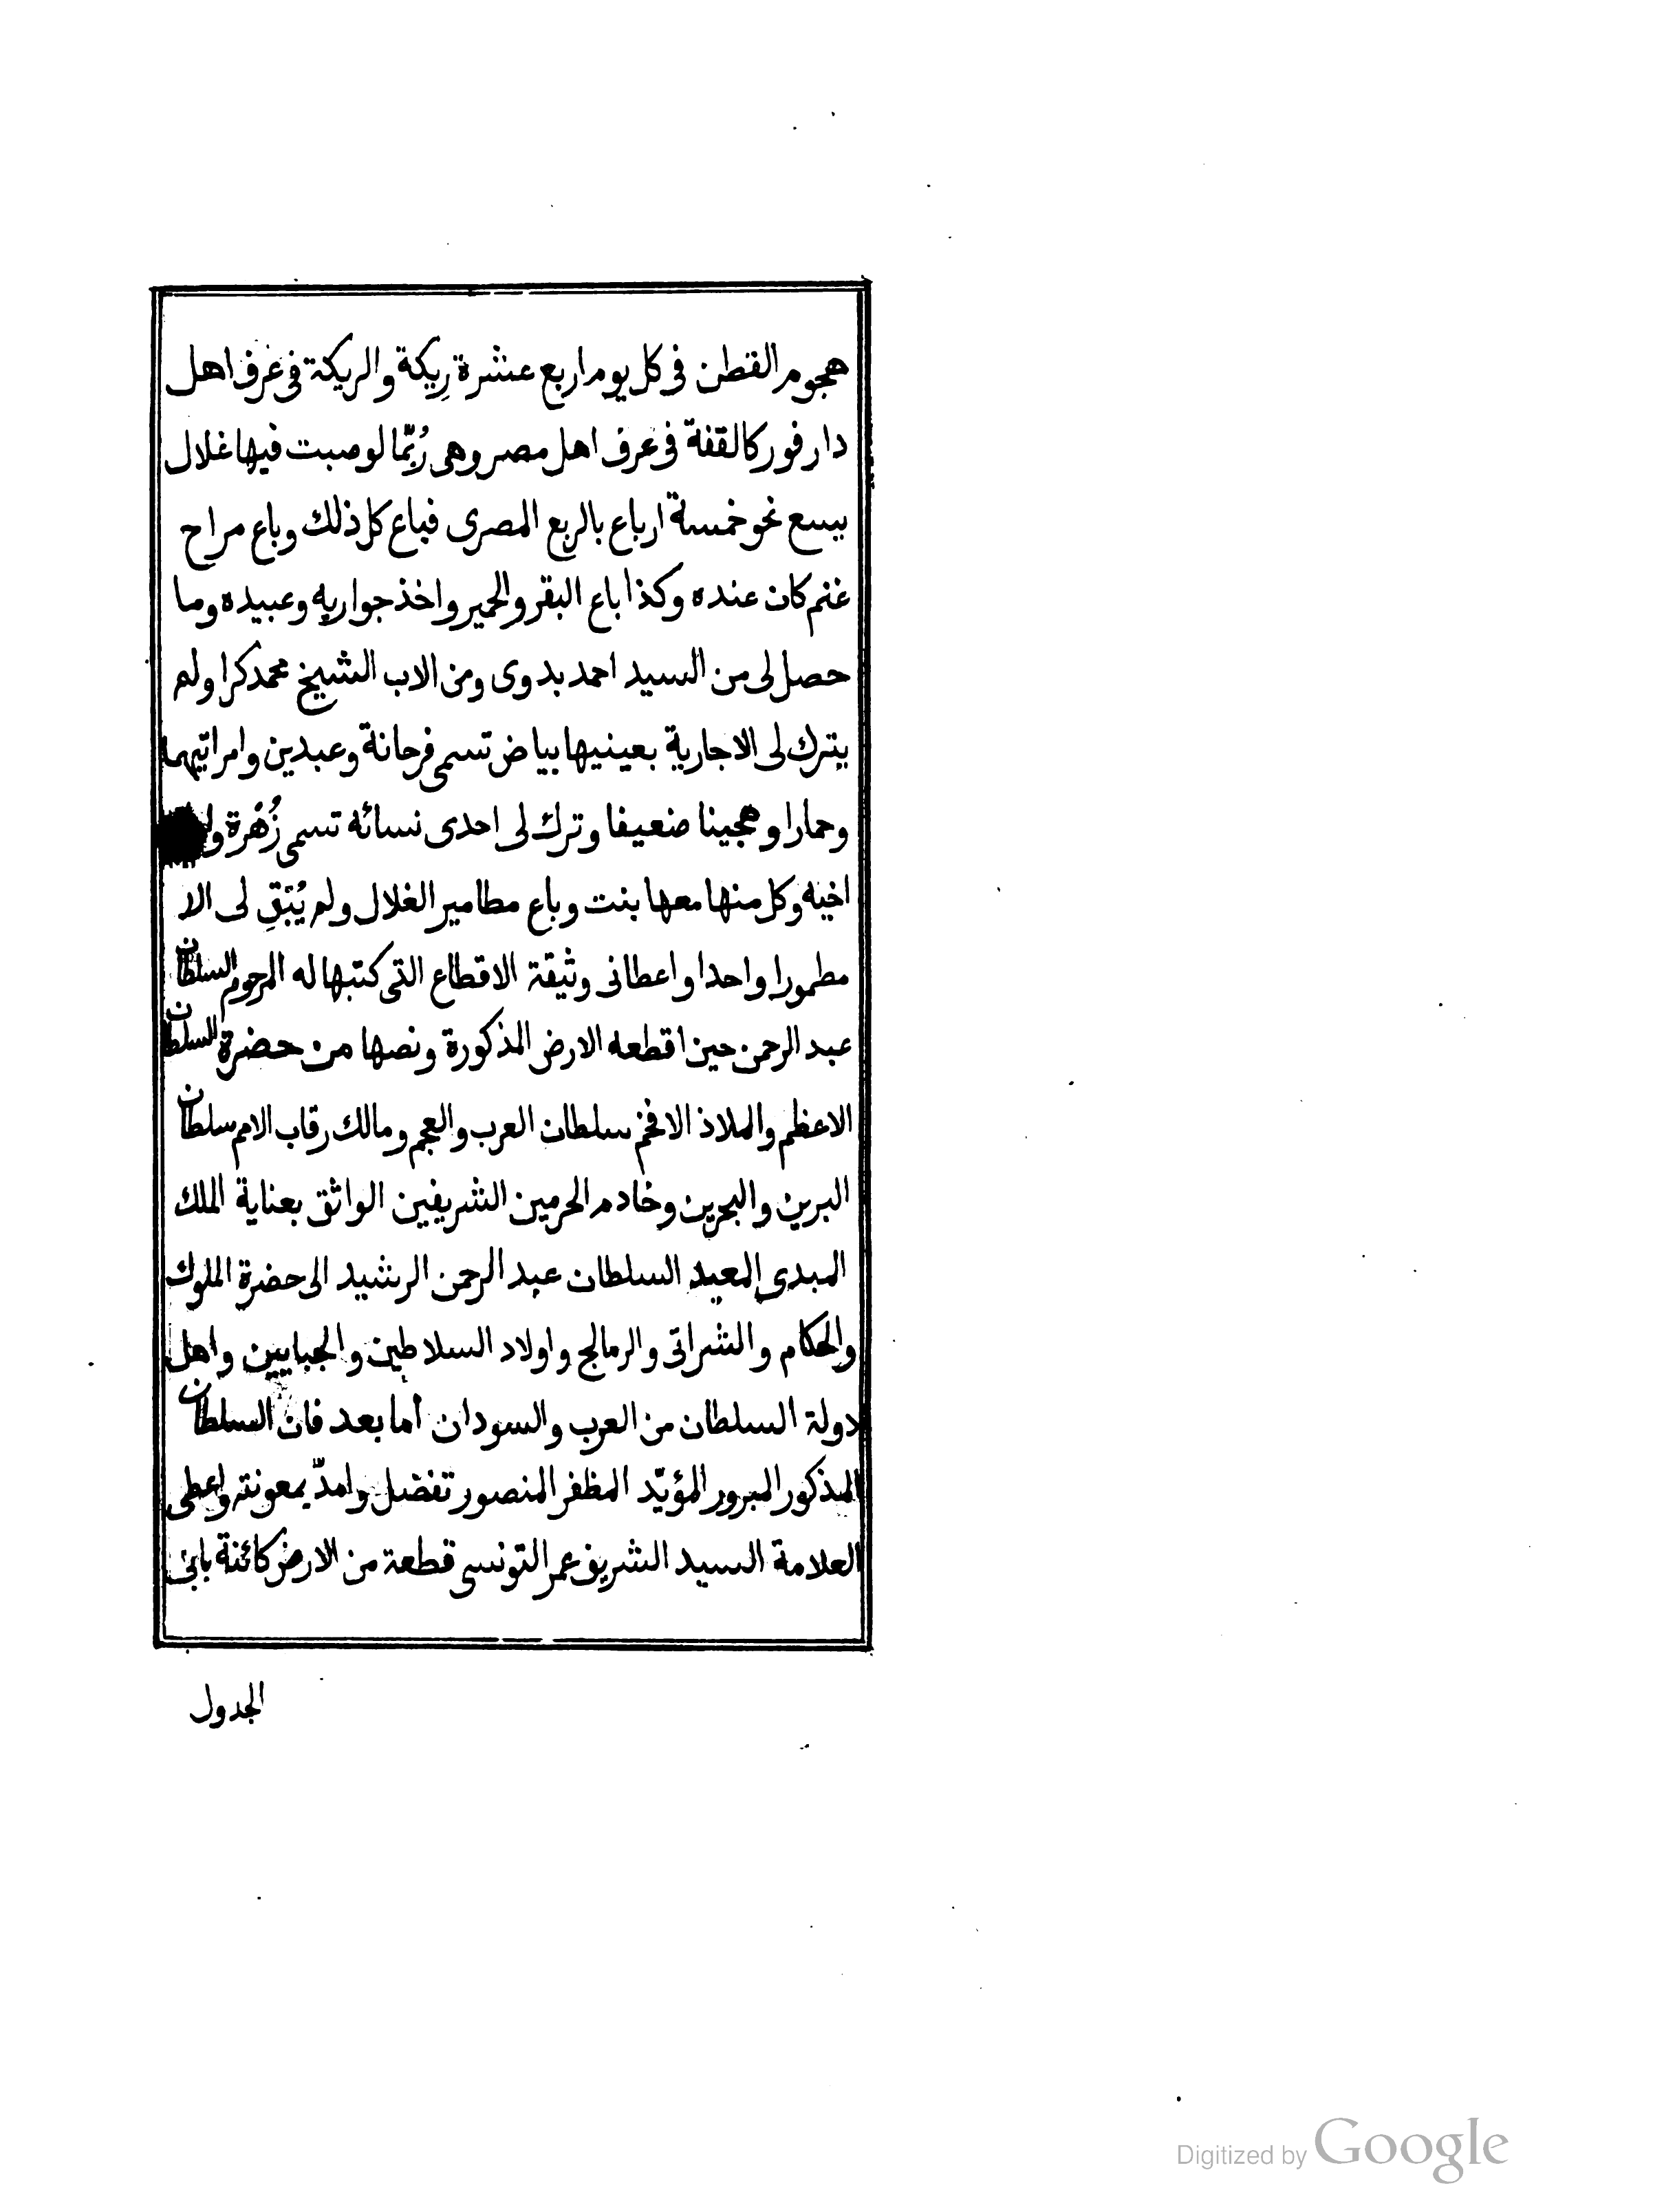 هجوم القطن فى كل يوم اربع عشرة رِيكة والريكة فى عرف اهل
دار فور كالقفة فى عرف اهل مصر وهى رُبّما لو صبت فيها غلال
يسع نحو خمسة ارباع بالربع المصرى فباع كل ذلك وباع مراح
غنم كان عنده وكذا باع البقر والحمير واخذ جواريه وعبيده وما
حصل لى من السيد احمد بدوى ومن الاب الشيخ محمد كرا ولم
يترك لى الا جارية بعينيها بياض تسمى فرحانة وعبدين وامراتيهما
وحمارا وهجينا ضعيفا وترك لى احدى نسائه تسمى زُهْرة
اخيه وكل منها معها بنت وباع مطامير الغلال ولم يُبْقِ لى الا
مطمورا واحدا واعطانى وثيقة الاقطاع التى كتبها له المرحوم السلطان
عبد الرحمن حين اقطعه الارض المذكورة ونصها من حضرة السلطان
الاعظم والملاذ الافخم سلطان العرب والعجم ومالك رقاب الامم سلطان
البرين والبحرين وخادم الحرمين الشريفين الواثق بعناية الملك
المبدى المعيد السلطان عبد الرحمن الرشيد الى حضرة الملوك
والحكام والشراتى والرمالج واولاد السلاطين والجبايين واهل
دولة السلطان من العرب والسودان أما بعد فان السلطان
المذكور المبرور المؤيّد المظفر المنصور تفضل وامدّ بمعونته واعطى
العلامة السيد الشريف عمر التونسى قطعة من الارض كائنة بابى
الجدول
Digitized by Google